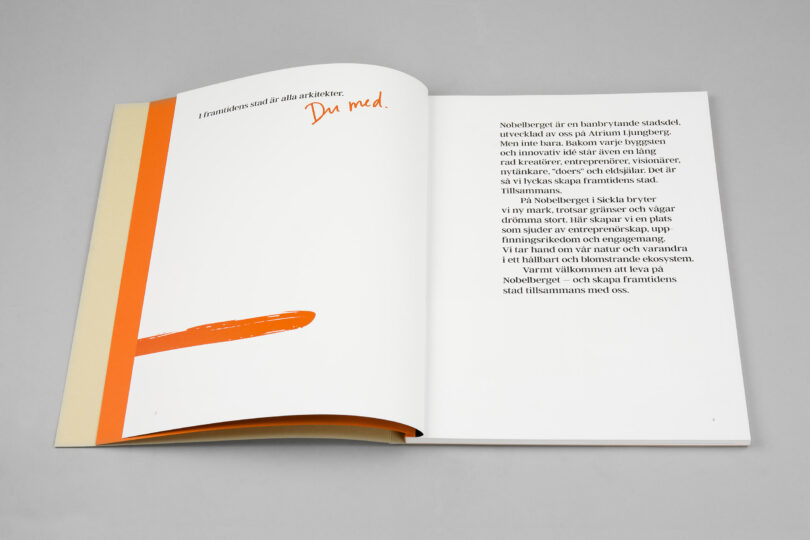 I framtidens stad är alla arkitekter.
Du med.
Nobelberget är en banbrytande stadsdel,
utvecklad av oss på Atrium Ljungberg.
Men inte bara. Bakom varje byggsten
och innovativ idé står även en lång
rad kreatörer, entreprenörer, visionärer,
nytänkare, ”doers” och eldsjälar. Det är
så vi lyckas skapa framtidens stad.
Tillsammans.
På Nobelberget i Sickla bryter
vi ny mark, trotsar gränser och vågar
drömma stort. Här skapar vi en plats
som sjuder av entreprenörskap, upp-
finningsrikedom och engagemang.
Vi tar hand om vår natur och varandra
i ett hållbart och blomstrande ekosystem.
Varmt välkommen att leva på
Nobelberget – och skapa framtidens
stad tillsammans med oss.